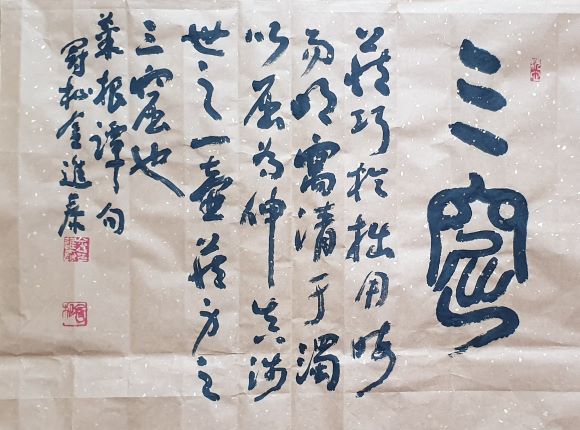 三窟
藏巧於拙用晦
而明寓清于濁
以屈為伸真涉
世之一壺藏身之
三窟也
菜根譚句
松金進泰